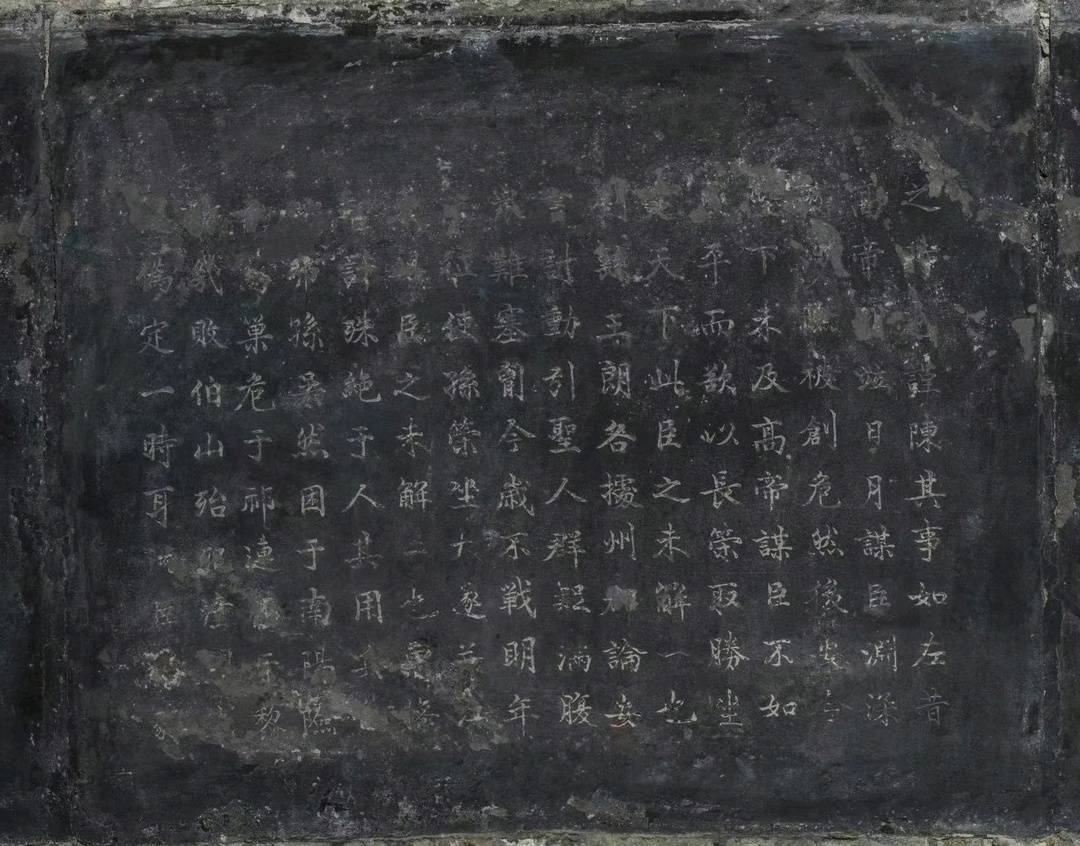 之謹陳其事如左昔
帝竝日月謀臣淵深
險被創危然後安今
下未及高帝謀臣不如
平而欲以長策取勝坐
定天下此臣之未解一也
劉繇王朗各據州郡論安
言計動引聖人群疑滿腹
衆難塞胷今歲不戰明年
征使孫策坐大遂并江
此臣之未解二也曹操
計殊絶于人其用兵
彿孫吳然困于南陽險
烏巢危于祁連逼于黎
幾敗伯山殆死潼
偽定一時耳況臣